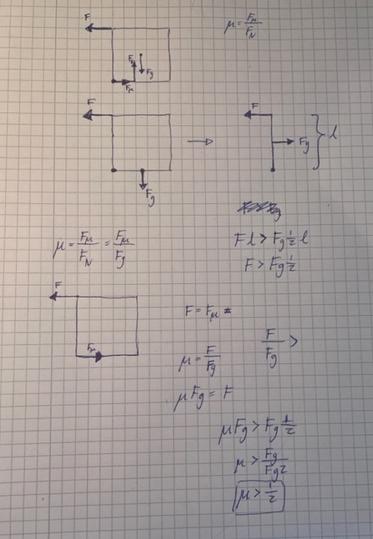 F
μ = Fμ/FN
FN
Fg
Fμ
F
F
Fg
l
Fg
μ = Fμ/FN = Fμ/Fg
F l > Fg ½ l
F > Fg ½
F
Fμ
F = Fμ
μ = F/Fg
F/Fg >
μ Fg = F
μ Fg > Fg ½
μ > Fg/Fg2
μ > ½